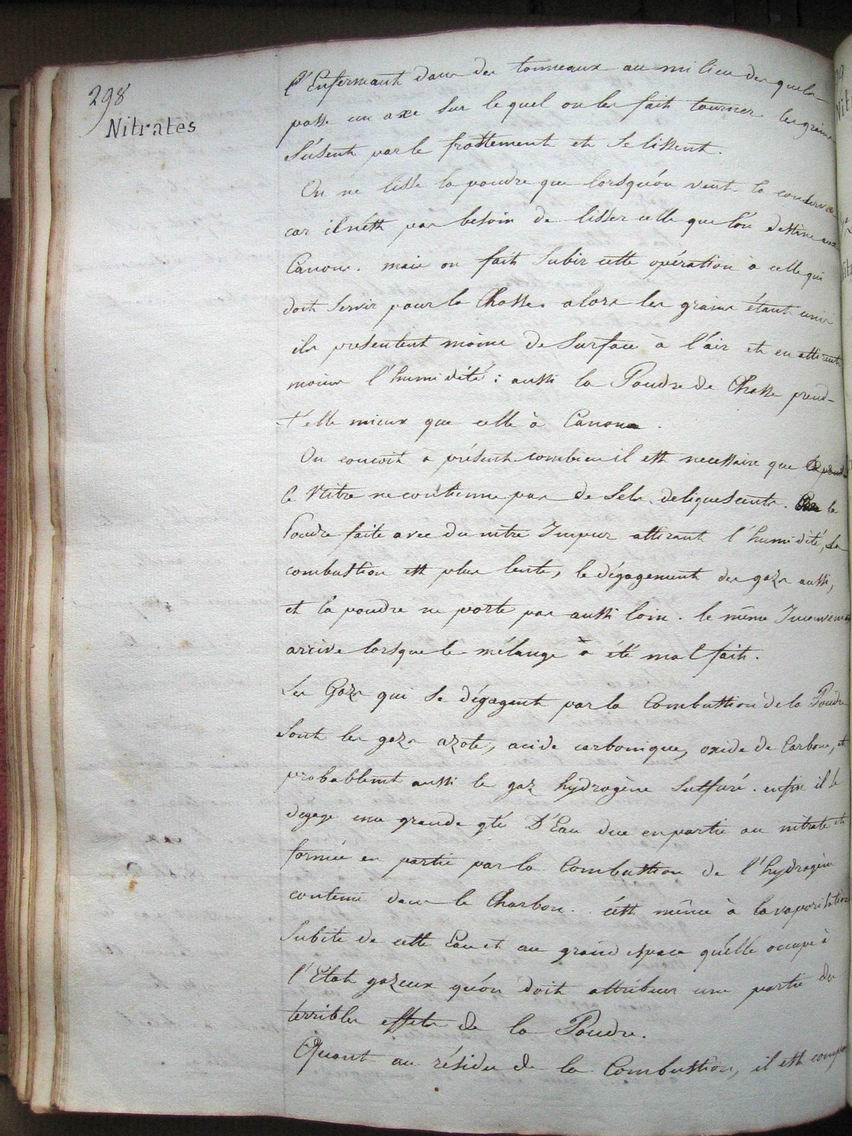 298
Nitrates
l'Enfermant dans des tonneaux au milieu des quels
passe un axe sur lequel on les fait tourner les grains
s'usent par le frottement et se lissent.
On ne lisse la poudre que lorsqu'on veut la conserver
car il n'est pas besoin de lisser celle que l'on destine aux
Canons. mais on fait subir cette opération à celle qui
doit servir pour la Chasse. alors les grains étant unis
ils presentent moins de surface à l'air et en attirent
moins l'humidité : aussi la Poudre de Chasse prend-
t'elle mieux que celle à Canon.
On conçoit a présent combien il est necessaire que
le Nitre ne contienne pas de Sels deliquescents. la
Poudre faite avec du nitre Impur attirant l'humidité, la
combustion est plus lente, le dégagement des gazs aussi,
et la poudre ne porte pas aussi loin. le même
arrive lorsque le mélange a été mal fait.
Les Gazs qui se dégagent par la Combustion de la Poudre
sont les gazs azote, acide carbonique, oxide de Carbone, et
probablemt aussi le gaz hydrogène sulfuré. enfin il se
degage une grande qté D'Eau due en partie au nitrate et
formée en partie par la Combustion de l'hydrogène
contenu dans le Charbon. c'est même à la vaporisation
subite de cette Eau et au grand espace qu'elle occupe à
l'Etat gazeux qu'on doit attribuer une partie des
terribles effets de la Poudre.
Quant au résidu de la Combustion, il est